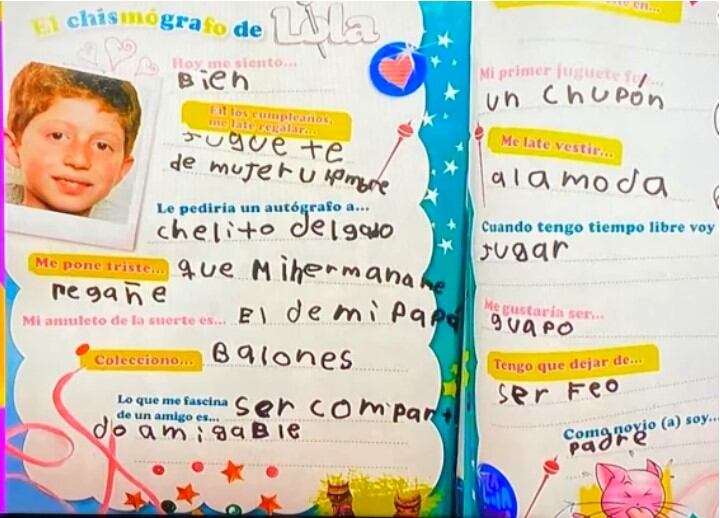 El chismógrafo de Lula
Hoy me siento...
Bien
En los cumpleaños,
me late regalar...
Jugue te
de mujer u
Le pediría un autógrafo a...
chelito delgado
Me pone triste... que Mi hermana me
regañe
Mi amuleto de la suerte es... El de mi Papá
Colecciono... Balones
Lo que me fascina
de un amigo es... ser compart
do amigable
en...
Mi primer juguete fue...
un chupón
Me late vestir...
a la moda
Cuando tengo tiempo libre voy
Jugar
Me gustaría ser...
guapo
Tengo que dejar de...
ser Feo
Como novio (a) soy...
padre